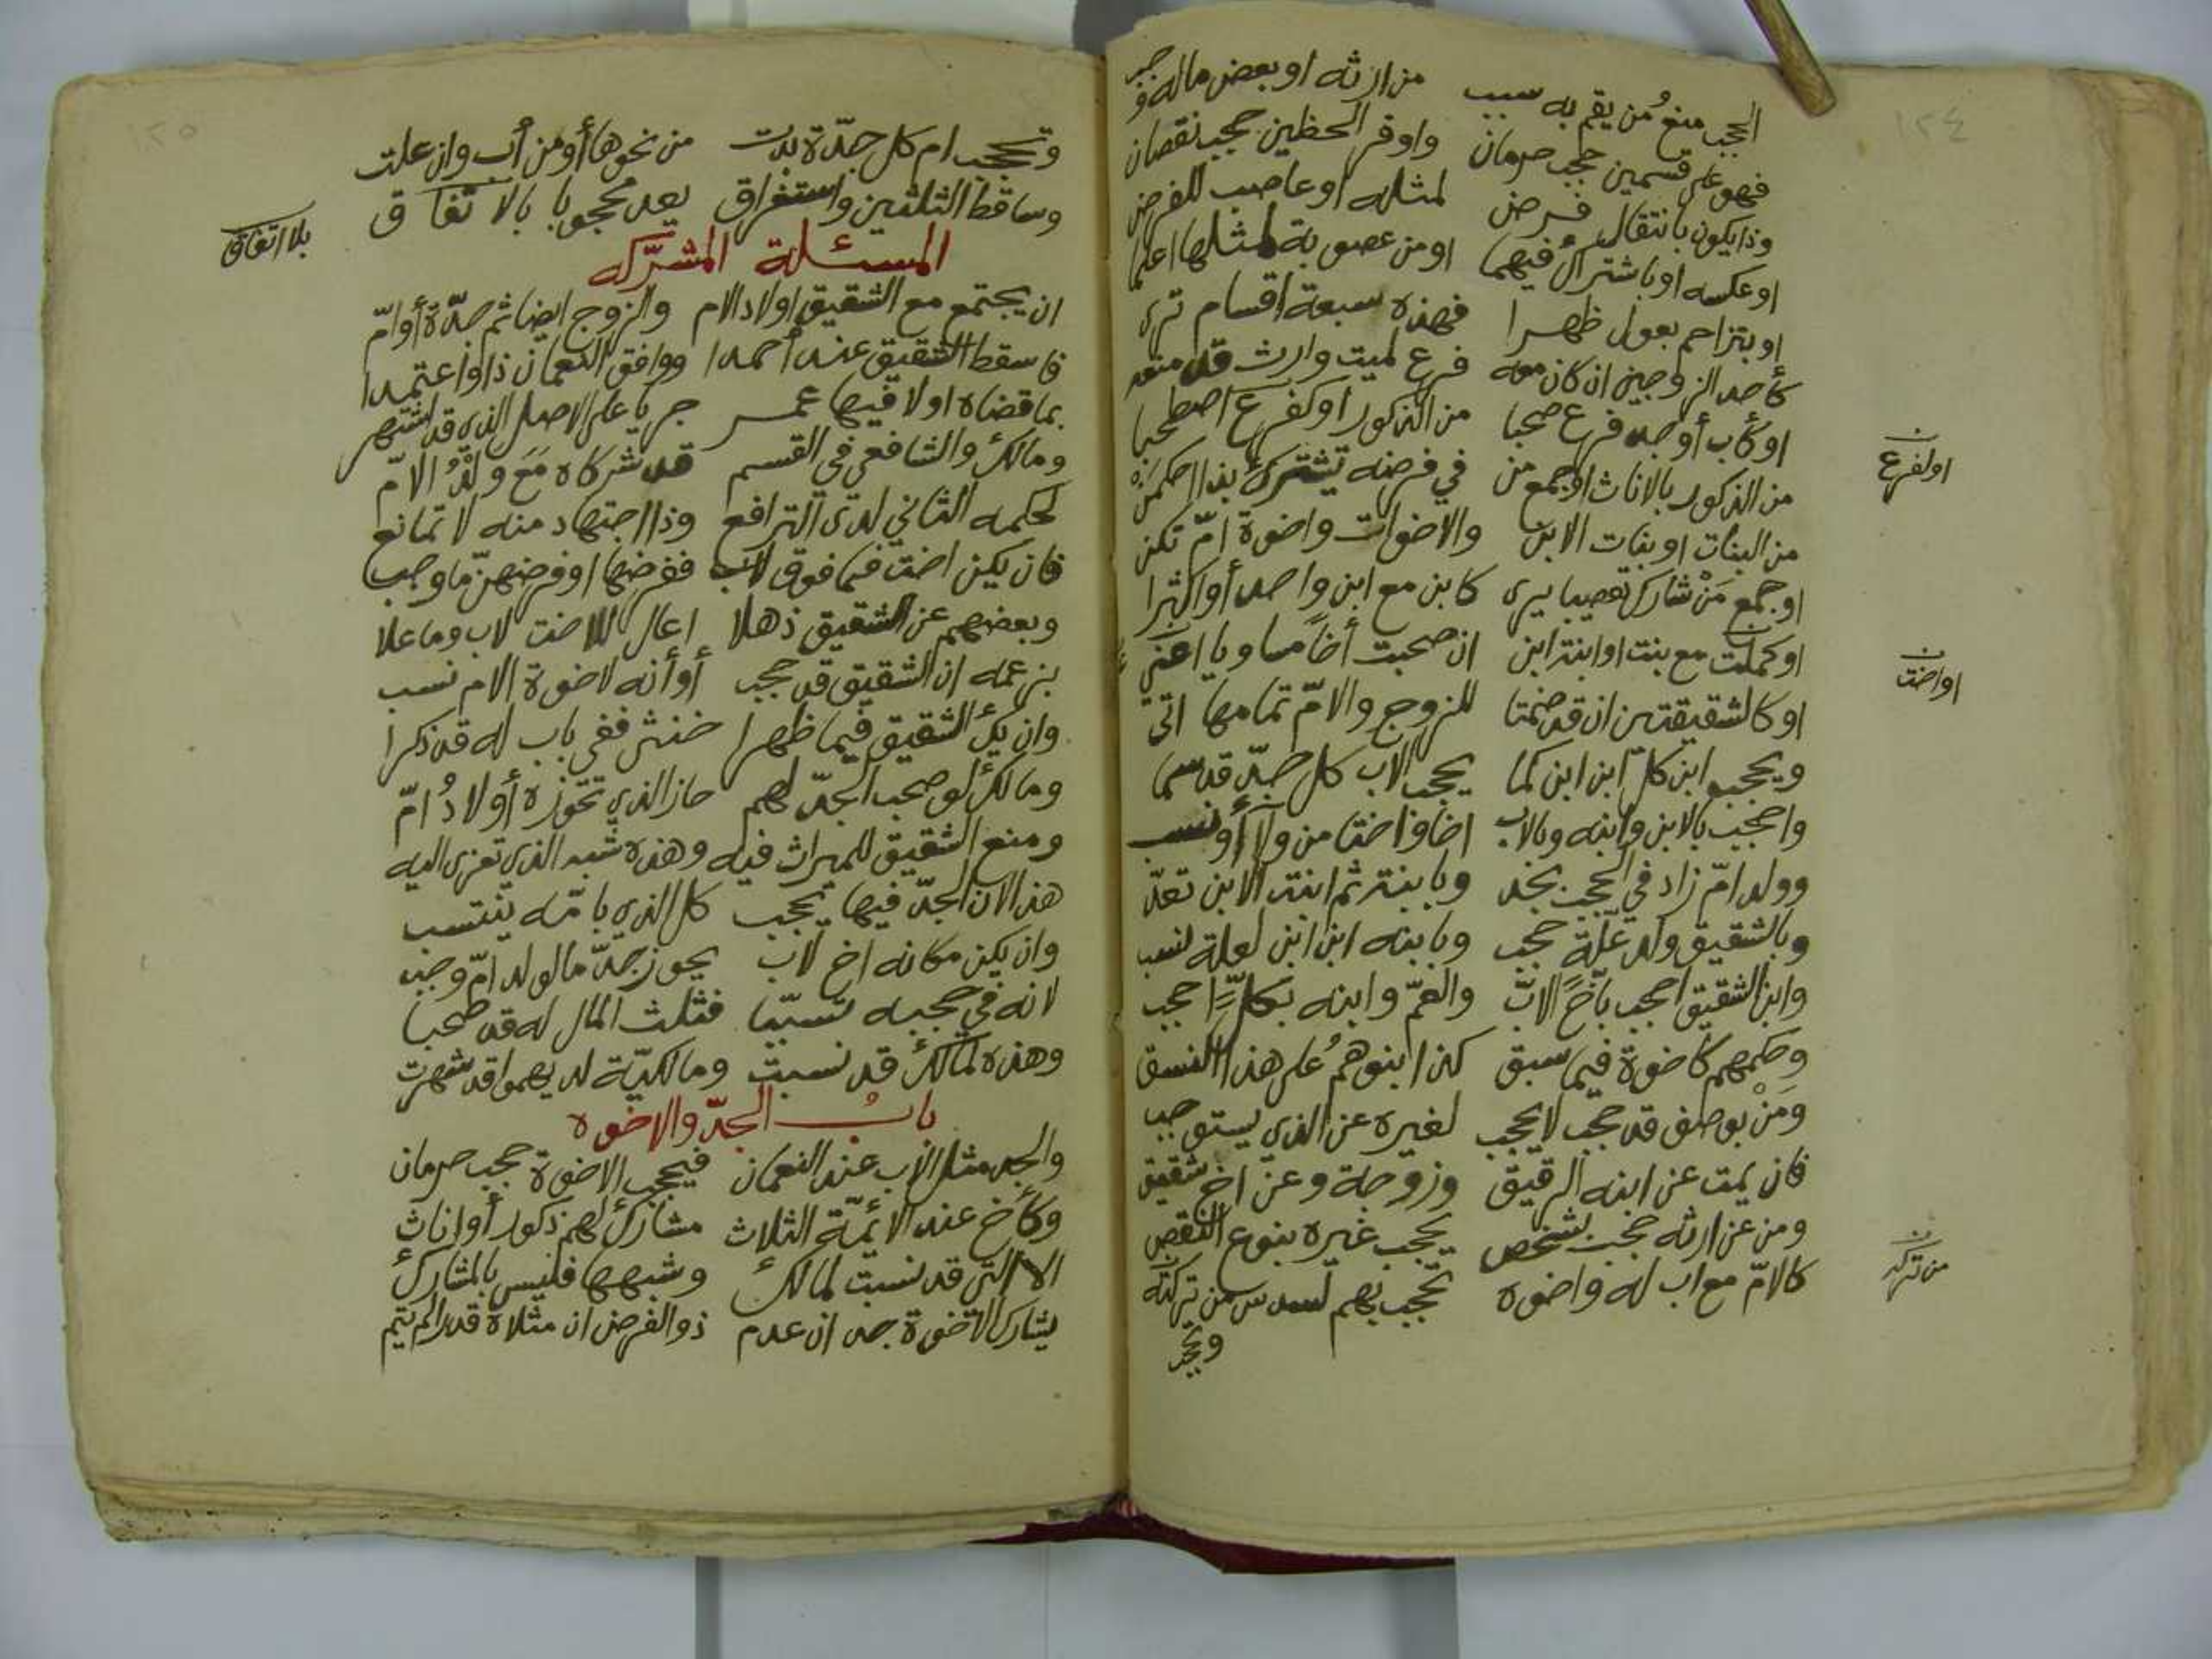 ١٢٤
الحجب منعُ من يقم به سبب من ارثه او بعض ماله وجب
فهو على قسمين حجب حرمان واوفر الحظين حجب نقصان
وذا يكون بانتقال فرض لمثله او عاصب للفرض
او عكسه او باشتراك فيهما او من عصوبة لمثلها اعلما
او بتزاحم بعول ظهرا فهذه سبعة اقسام ترى
كأحد الزوجين ان كان معه فرع لميت وارث قد منعه
او كأب أو جد فرع صحبا من الذكور او كفرع اصطحبا
اولفرع
من الذكور بالاناث او جمع من في فرضه تشترك بذا احكمن
من البنات او بنات الابن والاخوات واخوة امّ تكن
او جمع مَنْ شارك تعصيبا يرى كابن مع ابن واحد أو اكثرا
او كملت مع بنت او ابنة ابن ان صحبت أخاً مساويا اعني
او اخت
او كالشقيقتين ان قد ضمتا للزوج والامّ تمامها اتى
ويحجب ابن كل ابن ابن كما يحجب الاب كل جدّ قد سما
واحجب بالابن وابنه وبالاب اخا واختا من ولا أو نسب
وولد امّ زاد في الحجب بجد وبابنة ثم ابنة الابن تعدّ
وبالشقيق ولد علّة حجب وبابنه ابن ابن لعلة نسب
وابن الشقيق احجب بأخ الاب والعمّ وابنه بكلٍّ احجب
وحكمهم كاخوة فيما سبق كذا ابنوهمُ على هذا النسق
وَمَنْ بوصف قد حجب لا يحجب لغيره عن الذي يستوجب
فان يمت عن ابنه الرقيق وزوجة وعن اخ شقيق
ومن عن ارثه حجب بشخص يحجب غيره بنوع النقص
كالامّ مع اب له واخوة تحجب بهم لسدس من تركته
من تركه
وتحجب
١٢٥
وتحجب ام كل جدّة بدت من نحوها أو من أب وان علت
وساقط الثلثين واستغراق يعد محجوبا بالاتفاق
بلا اتفاق
المسئلة المشرّكه
ان يجتمع مع الشقيق اولاد الام والزوج ايضا ثم جدّة أو امّ
فاسقط الشقيق عند أحمدا ووافق النعمان ذا واعتمدا
بما قضاه اولا فيها عمر جريا على الاصل الذي قد اشتهر
ومالك والشافعي في القسم قد شركاه مَعَ ولْدُ الامّ
لحكمه الثاني لدى الترافع وذا اجتهاد منه لا تمانع
فان يكن اخت فما فوق لاب ففرضها او فرضهنّ ما وجب
وبعضهم عن الشقيق ذهلا اعال للاخت لاب وما علا
بزعمه ان الشقيق قد حجب أو أنه لاخوة الام نسب
وان يكُ الشقيق فيما ظهرا خنثى ففي باب له قد ذكرا
ومالك لو صحب الجدّ لهم حاز الذي تحوزه أولادُ امّ
ومنع الشقيق للميراث فيه وهذه شبه الذي تعزى اليه
هذا لان الجدّ فيها يحجب كل الذي بامّه ينتسب
وان يكن مكانه اخ لاب يحوز جدّ ما لولد امّ وجب
لانه في حجبه تسبّبا فثلث المال له قد صحبا
وهذه لمالك قد نسبت ومالكيّة لديهموا قد شهرت
بابُ الجدّ والاخوه
والجد مثل الأب عند النعمان فيحجب الاخوة حجب حرمان
وكأخ عند الائمّة الثلاث مشارك لهم ذكور أو اناث
الا التي قد نسبت لمالك وشبهها فليس بالمشارك
يشارك الاخوة جد ان عدم ذو الفرض ان مثلاه قدرا لم يتم